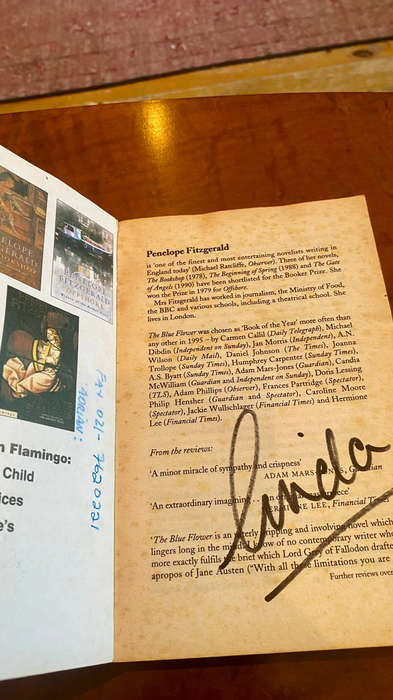 n Flamingo:
Child
ices
e's
ADRIAN:
FAX 021-7620221
Penelope Fitzgerald
is 'one of the finest and most entertaining novelists writing in
England today' (Michael Ratcliffe, Observer). Three of her novels,
The Bookshop (1978), The Beginning of Spring (1988) and The Gate
of Angels (1990) have been shortlisted for the Booker Prize. She
won the Prize in 1979 for Offshore.
Mrs Fitzgerald has worked in journalism, the Ministry of Food,
the BBC and various schools, including a theatrical school. She
lives in London.
The Blue Flower was chosen as 'Book of the Year' more often than
any other in 1995 – by Carmen Callil (Daily Telegraph), Michael
Dibdin (Independent on Sunday), Jan Morris (Independent), A.N.
Wilson (Daily Mail), Daniel Johnson (The Times), Joanna
Trollope (Sunday Times), Humphrey Carpenter (Sunday Times),
A.S. Byatt (Sunday Times), Adam Mars-Jones (Guardian), Candia
McWilliam (Guardian and Independent on Sunday), Doris Lessing
(TLS), Adam Phillips (Observer), Frances Partridge (Spectator),
Philip Hensher (Guardian and Spectator), Caroline Moore
(Spectator), Jackie Wullschlager (Financial Times) and Hermione
Lee (Financial Times).
From the reviews:
'A minor miracle of sympathy and crispness'
ADAM MARS-JONES, Guardian
'An extraordinary imagining
LEE, Financial Times
linda
'The Blue Flower is an utterly gripping and involving novel which
lingers long in the mind. I know of no contemporary writer who
more exactly fulfils the brief which Lord Grey of Fallodon drafte
apropos of Jane Austen ("With all these limitations you are
Further reviews over